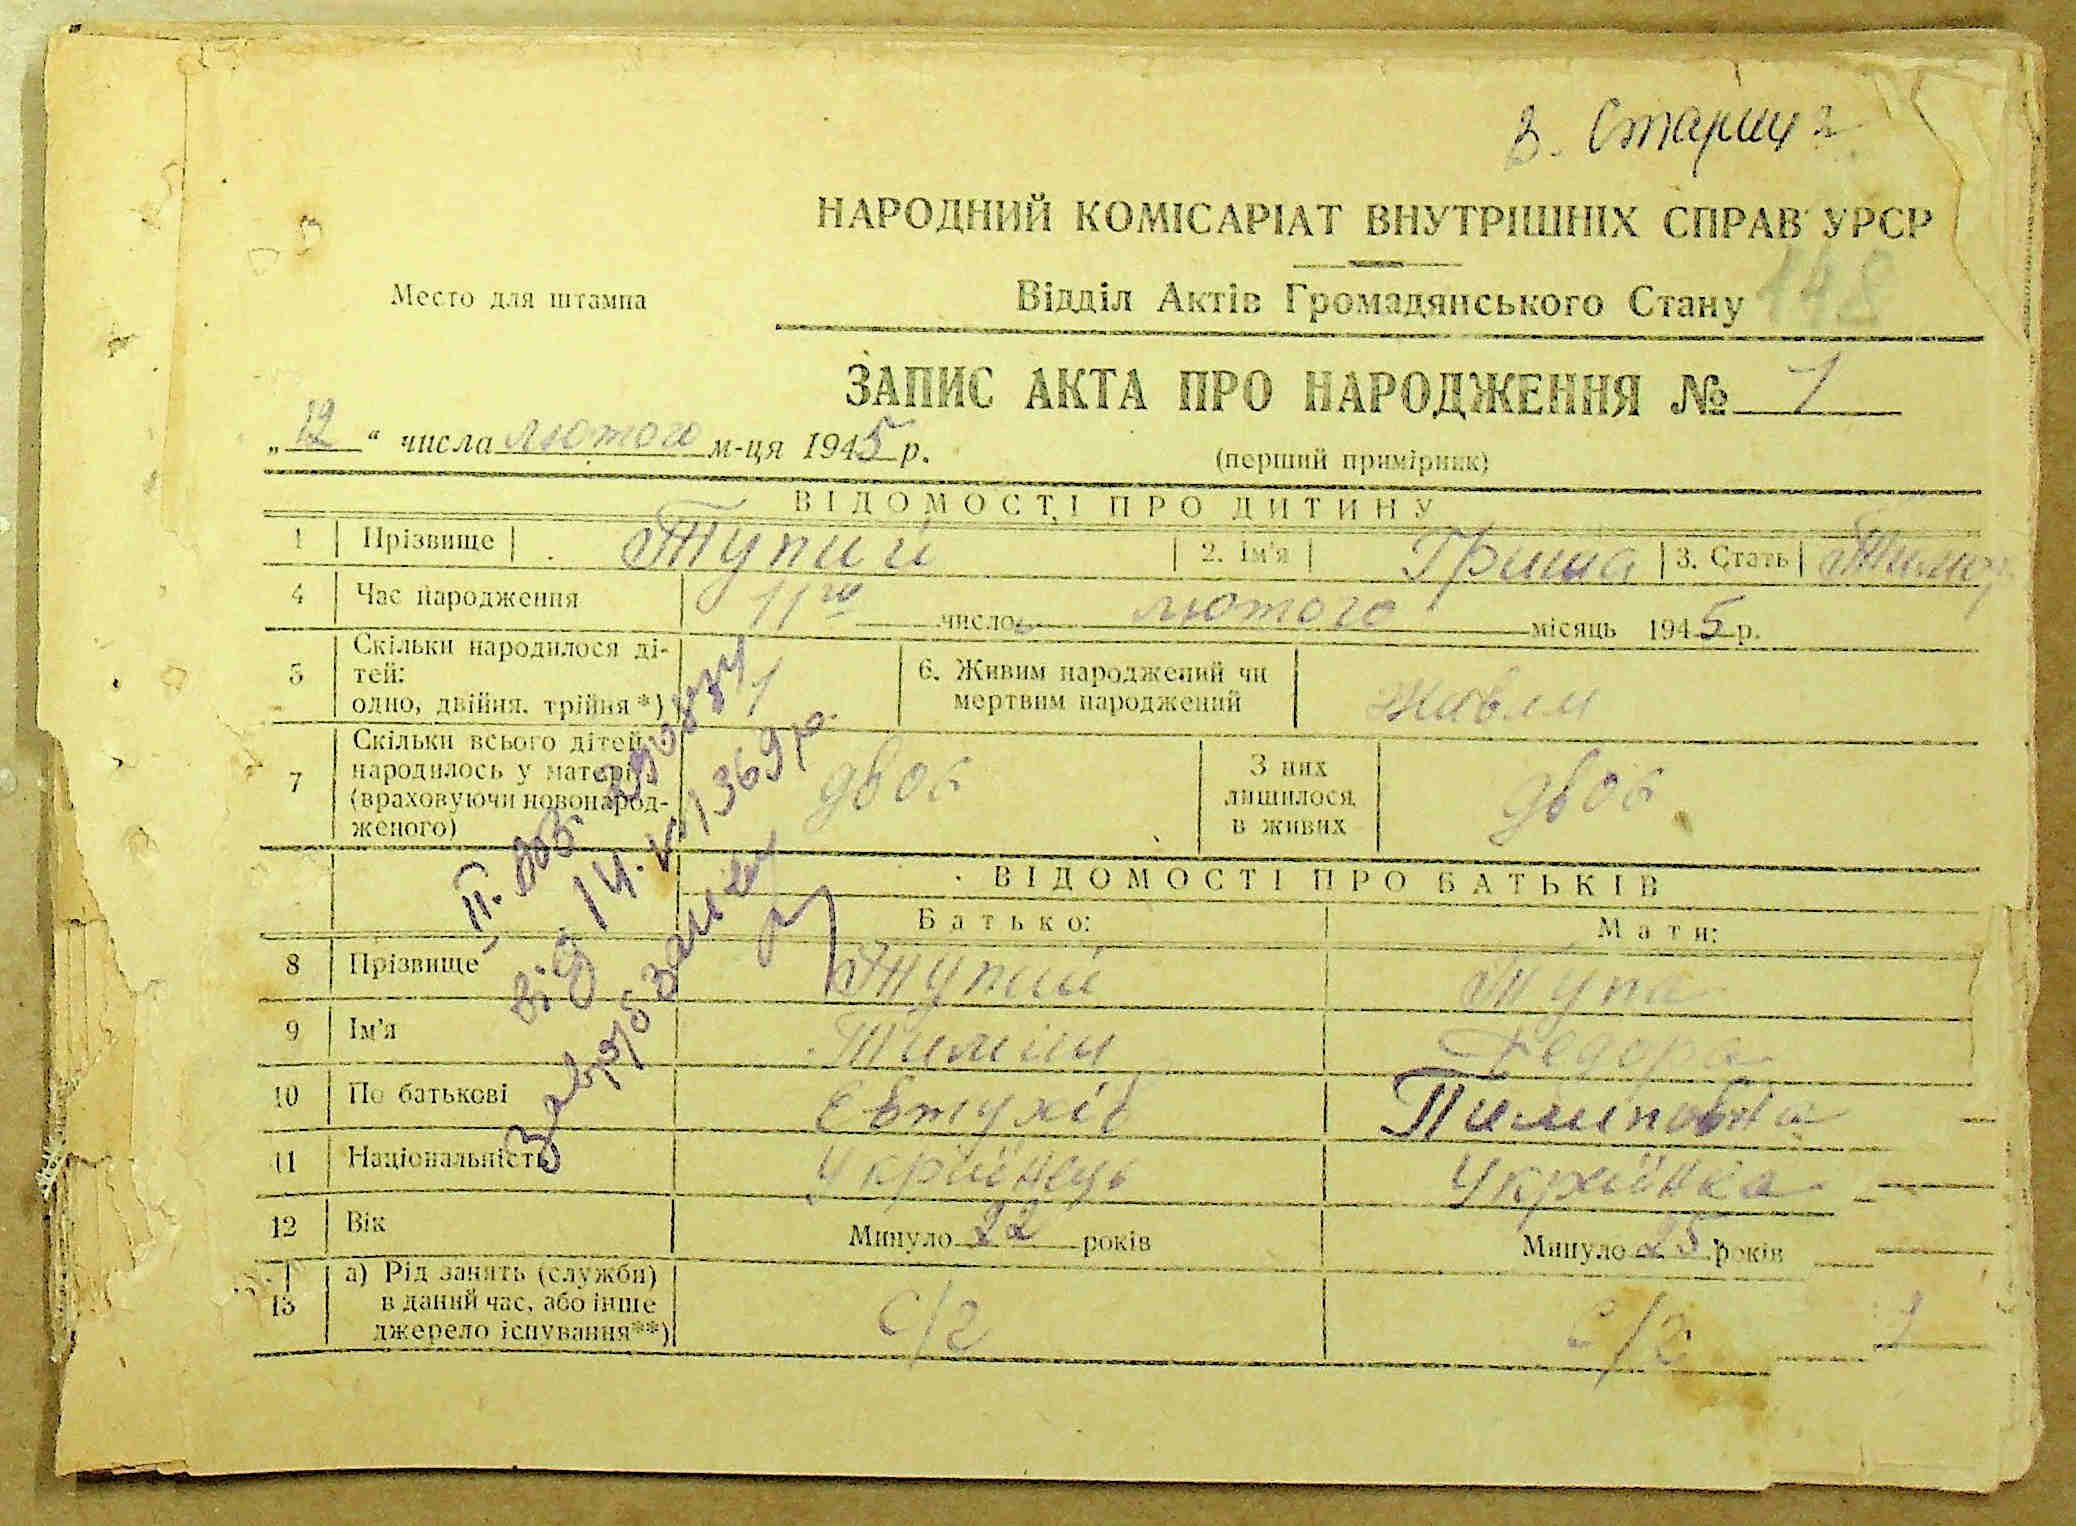 В. Стариця
НАРОДНИЙ КОМІСАРІАТ ВНУТРІШНІХ СПРАВ УРСР
Место для штампа
Відділ Актів Громадянського Стану 148
ЗАПИС АКТА ПРО НАРОДЖЕННЯ № 1
„12“ числа лютого м-ця 1945 р.
(перший примірник)
ВІДОМОСТІ ПРО ДИТИНУ
1 Прізвище Тупий 2. Ім'я Гриша 3. Стать
4 Час народження 11го число лютого місяць 1945 р.
5 Скільки народилося ді-
тей:
одно, двійня, трійня *) 1
6. Живим народжений чи
мертвим народжений
7 Скільки всього дітей
народилось у матері
(враховуючи новонарод-
женого) двоє
З них
лишилося
в живих двоє
ІІ. 
від 14. 1369 р.
ВІДОМОСТІ ПРО БАТЬКІВ
Батько: Мати:
8 Прізвище Тупий Тупа
9 Ім'я Федора
10 По батькові Євтухів Пилиповна
11 Національність Українець Українка
12 Вік Минуло 22 років Минуло 25 років
13 а) Рід занять (служби)
в даний час, або інше
джерело існування**) с/г с/г